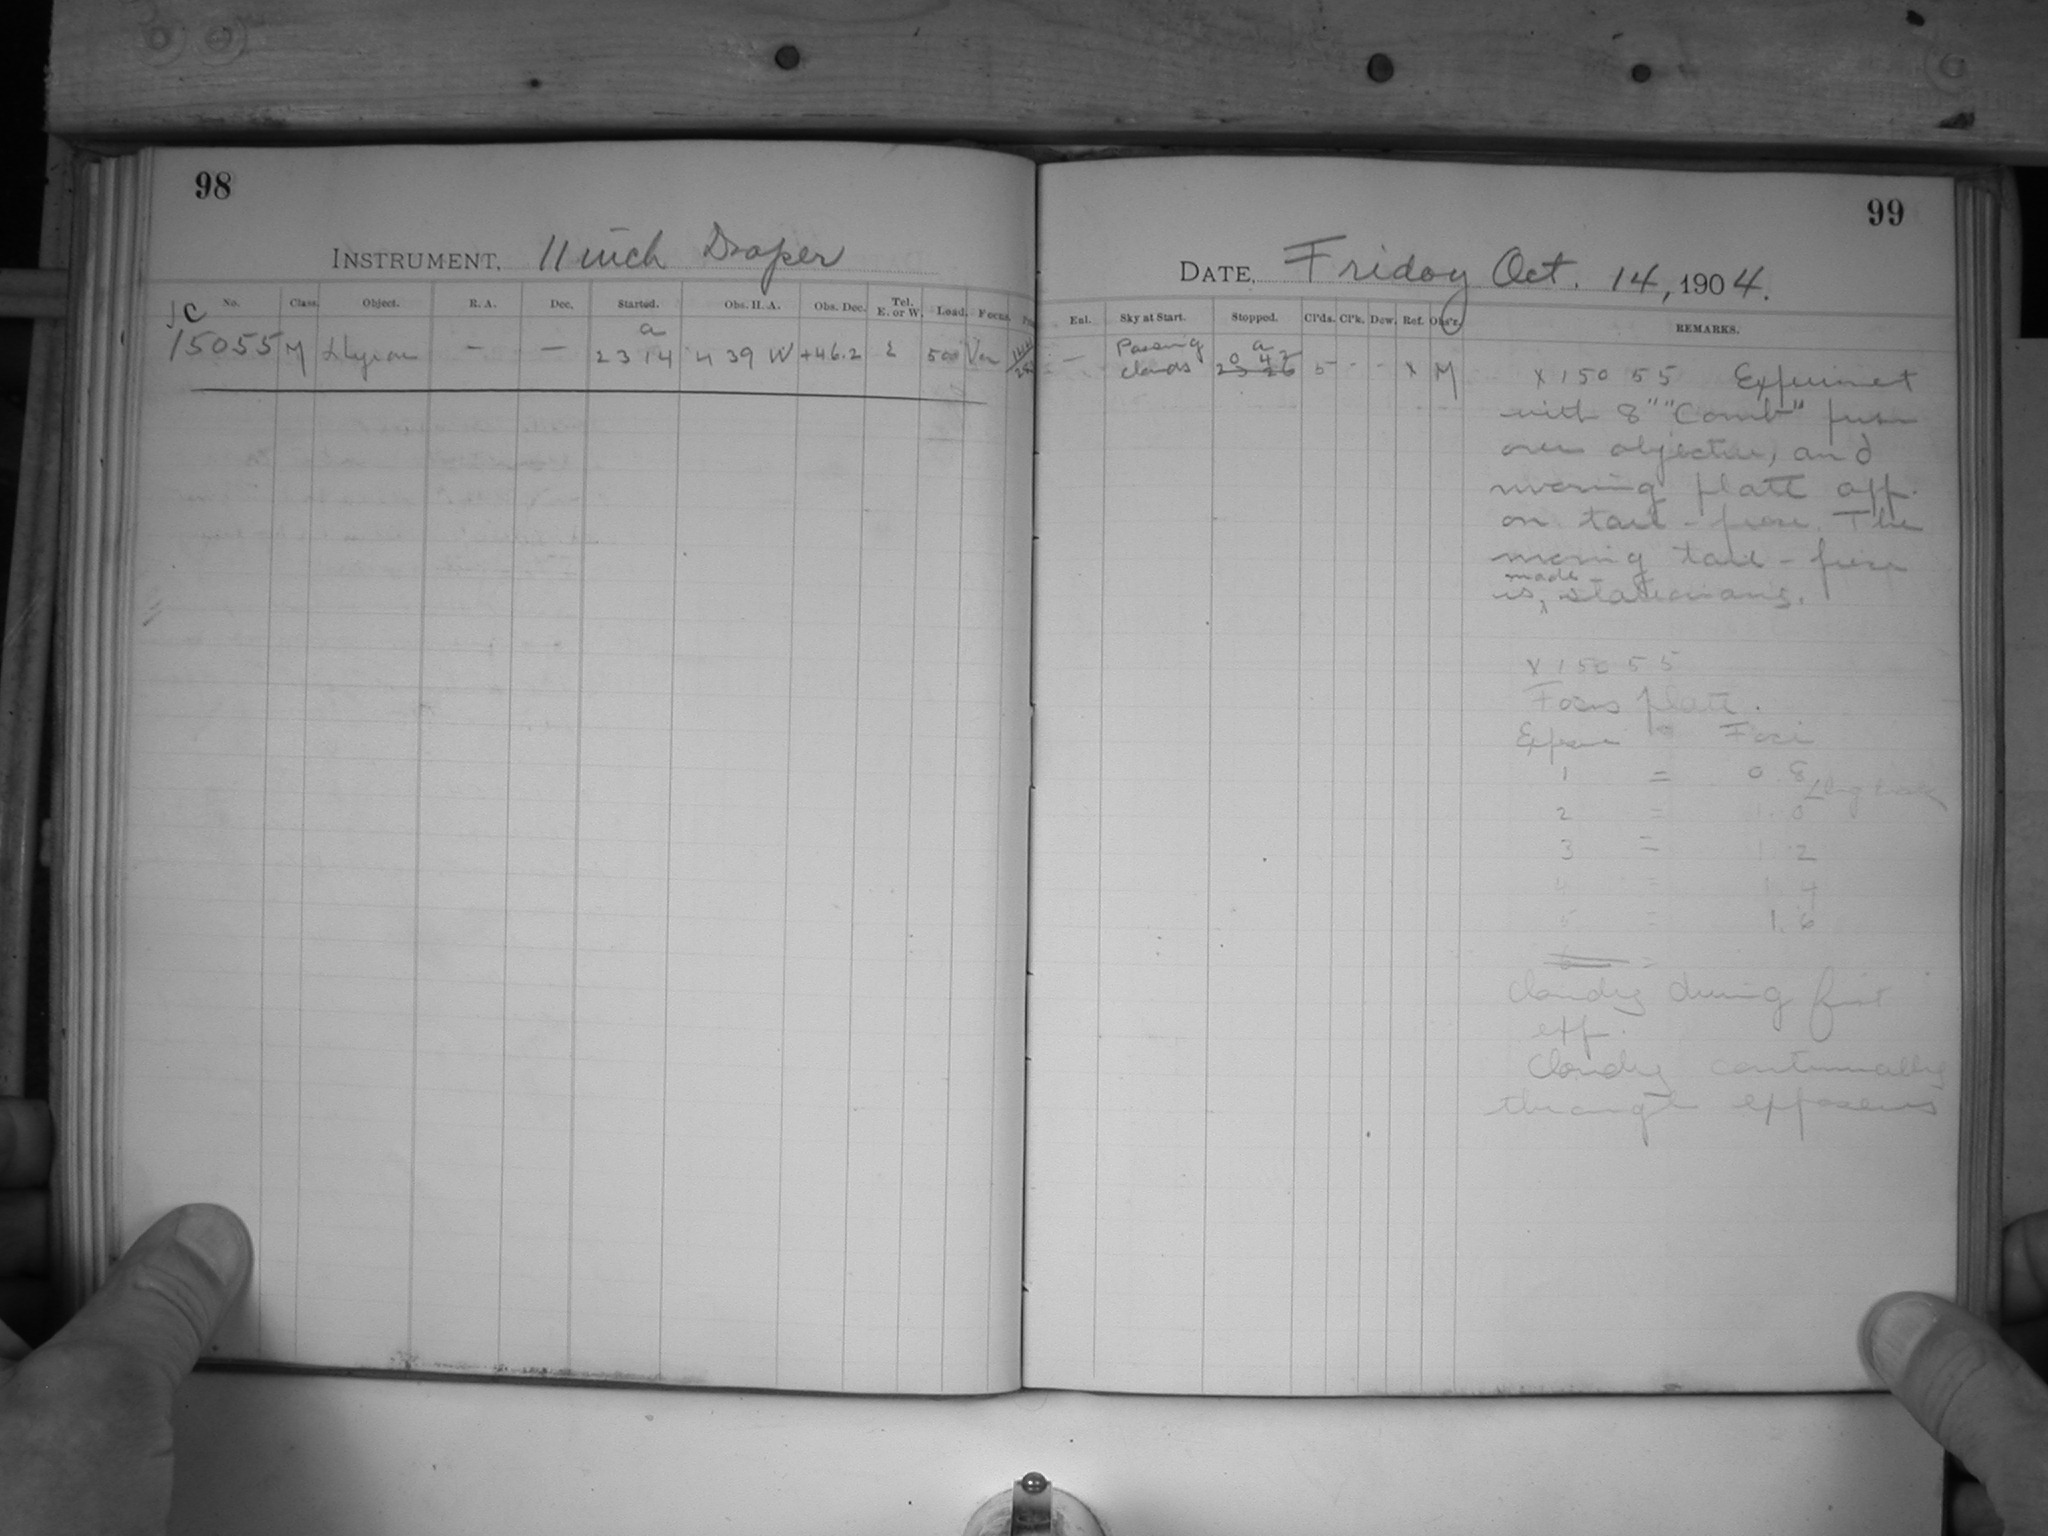 98
INSTRUMENT, 11 inch Draper
No. Class. Object. R. A. Dec. Started. Obs. H. A. Obs. Dec. Tel. E. or W. Load. Focus.
C
15055 M — — a 23 14 4 39 W +46.2 E 500
99
DATE, Friday Oct. 14, 1904.
Enl. Sky at Start. Stopped. Cl'ds. Cl'k. Dew. Ref. Obs'r. REMARKS.
— Passing clouds a 0 42 23 26 5 - - x M
x 15055 Experiment
with 8" "Comb"
over objective, and
moving plate app.
on tail-piece. The
moving tail-piece
is made stationary.
x 15055
Focus plate.
Exposure = Foci
1 = 0.8
2 = 1.0
3 = 1.2
4 = 1.4
5 = 1.6
6 =
Cloudy during first
exp.
Cloudy continually
through exposures